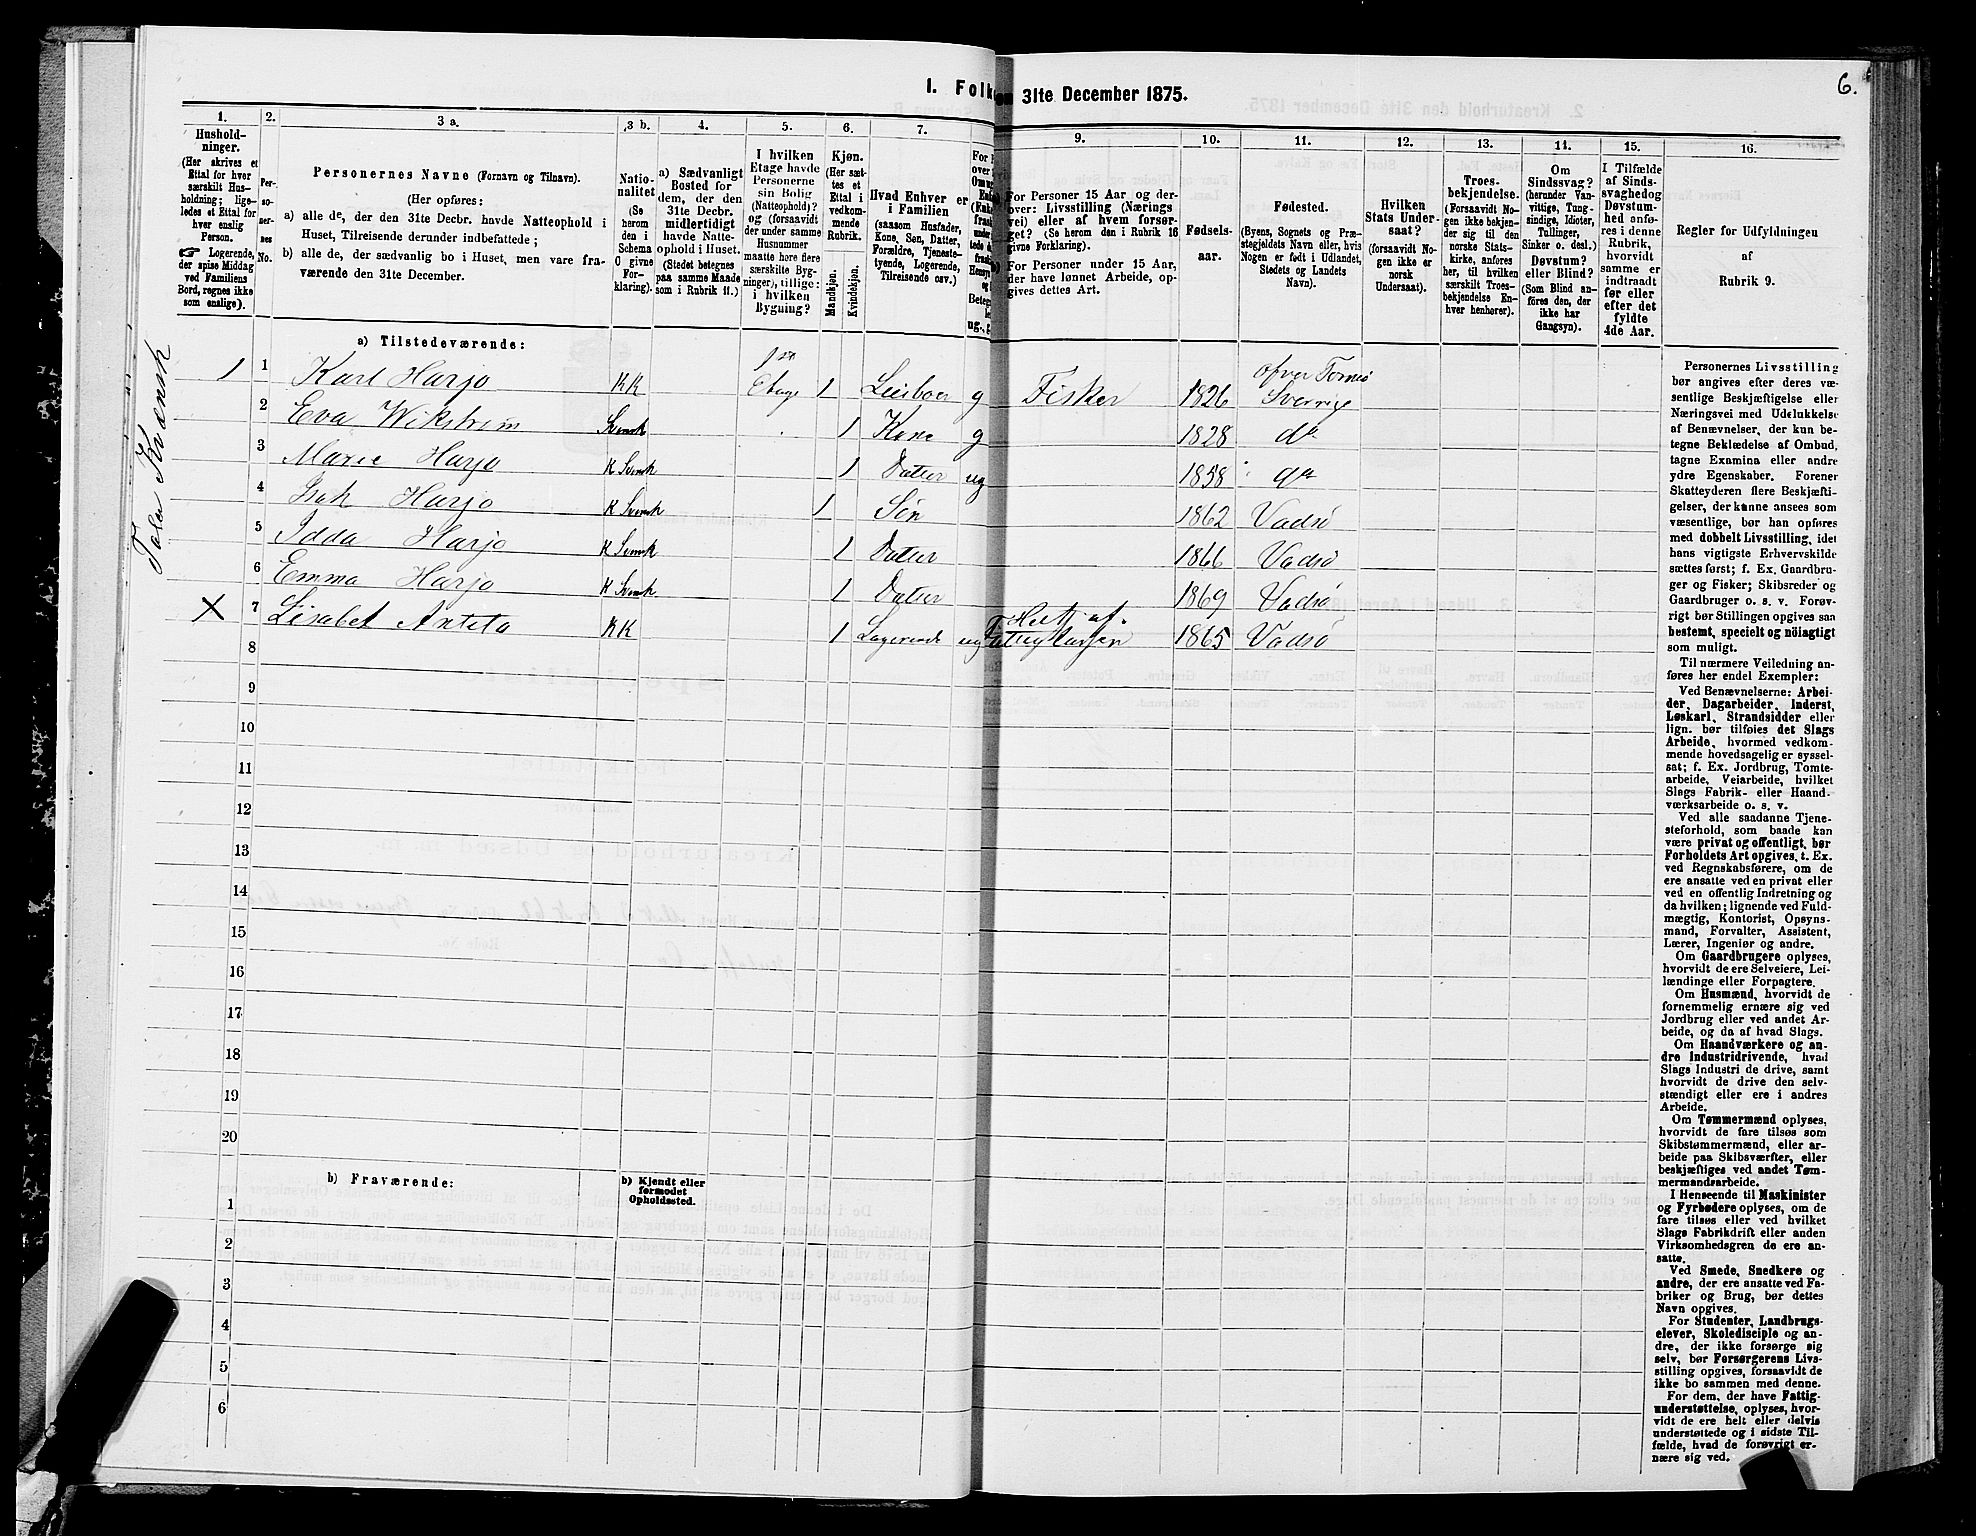 6.
1. Folke
en 31te December 1875.
1. 2. 3 a. 3 b. 4. 5. 6. 7. 9. 10. 11. 12. 13. 14. 15. 16.
Hushold-
ninger.
(Her skrives et
Ettal for hver
særskilt Hus-
holdning; lige-
ledes et Ettal for
hver enslig
Person.
☞ Logerende,
der spise Middag
ved Familiens
Bord, regnes ikke
som enslige).
Per-
so-
ner-
nes
No.
Personernes Navne (Fornavn og Tilnavn).
(Her opføres:
a) alle de, der den 31te Decbr. havde Natteophold i
Huset, Tilreisende derunder indbefattede;
b) alle de, der sædvanlig bo i Huset, men vare fra-
værende den 31te December.
Natio-
nalitet
(Se
herom
den i
Schema
O givne
For-
klaring).
a) Sædvanligt
Bosted for
dem, der den
31te Decbr.
midlertidigt
havde Natte-
ophold i Huset.
(Stedet betegnes
paa samme Maade
som i Rubrik 11.)
I hvilken
Etage havde
Personerne
sin Bolig
(Natteophold)?
og (forsaavidt
der under samme
Husnummer
maatte høre flere
særskilte Byg-
ninger), tillige:
i hvilken
Bygning?
Kjøn.
(Her sæt-
tes et
Ettal i
vedkom-
mende
Rubrik.
Mandkjøn.
Kvindekjøn.
Hvad Enhver er
i Familien
(saasom Husfader,
Kone, Søn, Datter,
Forældre, Tjeneste-
tyende, Logerende,
Tilreisende osv.)
For Personer 15 Aar og der-
over: Livsstilling (Nærings
vei) eller af hvem forsør-
get? (Se herom den i Rubrik 16
givne Forklaring).
For Personer under 15 Aar,
der have lønnet Arbeide, op-
gives dettes Art.
Fødsels-
aar.
Fødested.
(Byens, Sognets og Præ-
stegjeldets Navn eller, hvis
Nogen er født i Udlandet,
Stedets og Landets
Navn).
Hvilken
Stats Under-
saat?
(forsaavidt No-
gen ikke er
norsk
Undersaat).
Troes-
bekjendelse.
(Forsaavidt No-
gen ikke bekjen-
der sig til den
norske Stats-
kirke, anføres
her, til hvilken
særskilt Troes-
bekjendelse En-
hver henhører).
Om
Sindssvag?
(herunder Van-
vittige, Tung-
sindige, Idioter,
Tullinger,
Sinker o. desl.)
Døvstum?
eller Blind?
(Som Blind an-
føres den, der
ikke har
Gangsyn).
I Tilfælde
af Sinds-
svaghed og
Døvstum-
hed anfø-
res i denne
Rubrik,
hvorvidt
samme er
indtraadt
før eller
efter det
fyldte
4de Aar.
Regler for Udfyldningen
af
Rubrik 9.
a) Tilstedeværende:
1 1 Karl Harjo KK 1ste Etage 1 Leiboer g Fisker 1826 ofver Torneå Sverrige
2 Eva Wikstrøm Svensk 1 Kone g 1828 do
3 Marie Harjo K Svensk 1 Datter ug 1858 do
4 Isak Harjo K Svensk 1 Søn 1862 Vadsø
5 Idda Harjo K Svensk 1 Datter 1866 Vadsø
6 Emma Harjo K Svensk 1 Datter 1869 Vadsø
X 7 Lisabet Anteta KK 1 Logerende ug Helt af Fattigkassen 1865 Vadsø
8
9
10
11
12
13
14
15
16
17
18
19
20
b) Fraværende:
b) Kjendt eller
formodet
Opholdssted.
1
2
3
4
5
6
Taler Kvænsk
Personernes Livsstilling
bør angives efter deres væ-
sentlige Beskjæftigelse eller
Næringsvei med Udelukkelse
af Benævnelser, der kun be-
tegne Beklædelse af Ombud,
tagne Examina eller andre
ydre Egenskaber. Forener
Skatteyderen flere Beskjæfti-
gelser, der kunne ansees som
væsentlige, bør han opføres
med dobbelt Livsstilling, idet
hans vigtigste Erhvervskilde
sættes først; f. Ex. Gaardbru-
ger og Fisker; Skibsreder og
Gaardbruger o. s. v. Forøv-
rigt bør Stillingen opgives saa
bestemt, specielt og nöiagtigt
som muligt.
Til nærmere Veiledning an-
føres her endel Exempler:
Ved Benævnelserne: Arbei-
der, Dagarbeider, Inderst,
Løskarl, Strandsidder eller
lign. bør tilføies det Slags
Arbeide, hvormed vedkom-
mende hovedsagelig er syssel-
sat; f. Ex. Jordbrug, Tomte-
arbeide, Veiarbeide, hvilket
Slags Fabrik- eller Haand-
værksarbeide o. s. v.
Ved alle saadanne Tjene-
steforhold, som baade kan
være privat og offentligt, bør
Forholdets Art opgives, t. Ex.
ved Regnskabsførere, om de
ere ansatte ved en privat eller
ved en offentlig Indretning og
da hvilken; lignende ved Fuld-
mægtig, Kontorist, Opsyns-
mand, Forvalter, Assistent,
Lærer, Ingeniør og andre.
Om Gaardbrugere oplyses,
hvorvidt de ere Selveiere, Lei-
lændinge eller Forpagtere.
Om Husmænd, hvorvidt de
fornemmelig ernære sig ved
Jordbrug eller ved andet Ar-
beide, og da af hvad Slags.
Om Haandværkere og an-
dre Industridrivende, hvad
Slags Industri de drive, samt
hvorvidt de drive den selv-
stændigt eller ere i andres
Arbeide.
Om Tømmermænd oplyses,
hvorvidt de fare tilsøs som
Skibstømmermænd, eller ar-
beide paa Skibsværfter, eller
beskjæftiges ved andet Tøm-
mermandsarbeide.
I Henseende til Maskinister
og Fyrbødere oplyses, om de
fare tilsøs eller ved hvilket
Slags Fabrikdrift eller anden
Virksomhedsgren de ere an-
satte.
Ved Smede, Snedkere og
andre, der ere ansatte ved Fa-
briker og Brug, bør dettes
Navn opgives.
For Studenter, Landbrugs-
elever, Skoledisciple og an-
dre, der ikke forsørge sig
selv, bør Forsørgerens Livs-
stilling opgives, forsaavidt de
ikke bo sammen med denne.
For dem, der have Fattig-
understøttelse, oplyses, hvor-
vidt de ere helt eller delvis
understøttede og i sidste Til-
fælde, hvad de forøvrigt er-
nære sig ved.